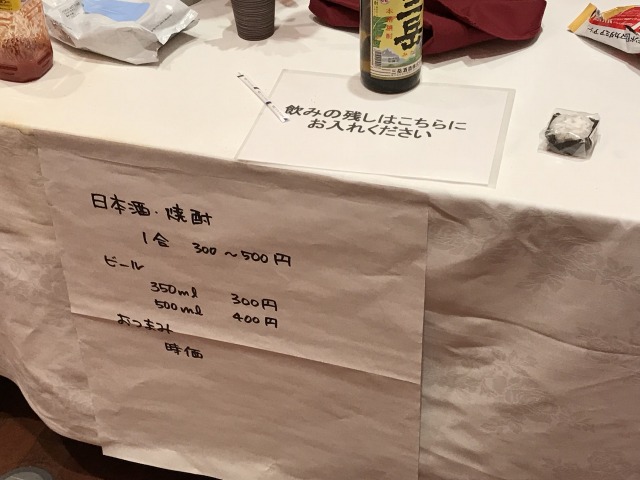 三岳
飲みの残しはこちらに
お入れください
日本酒・焼酎
1合 300～500円
ビール
350ml 300円
500ml 400円
おつまみ
時価